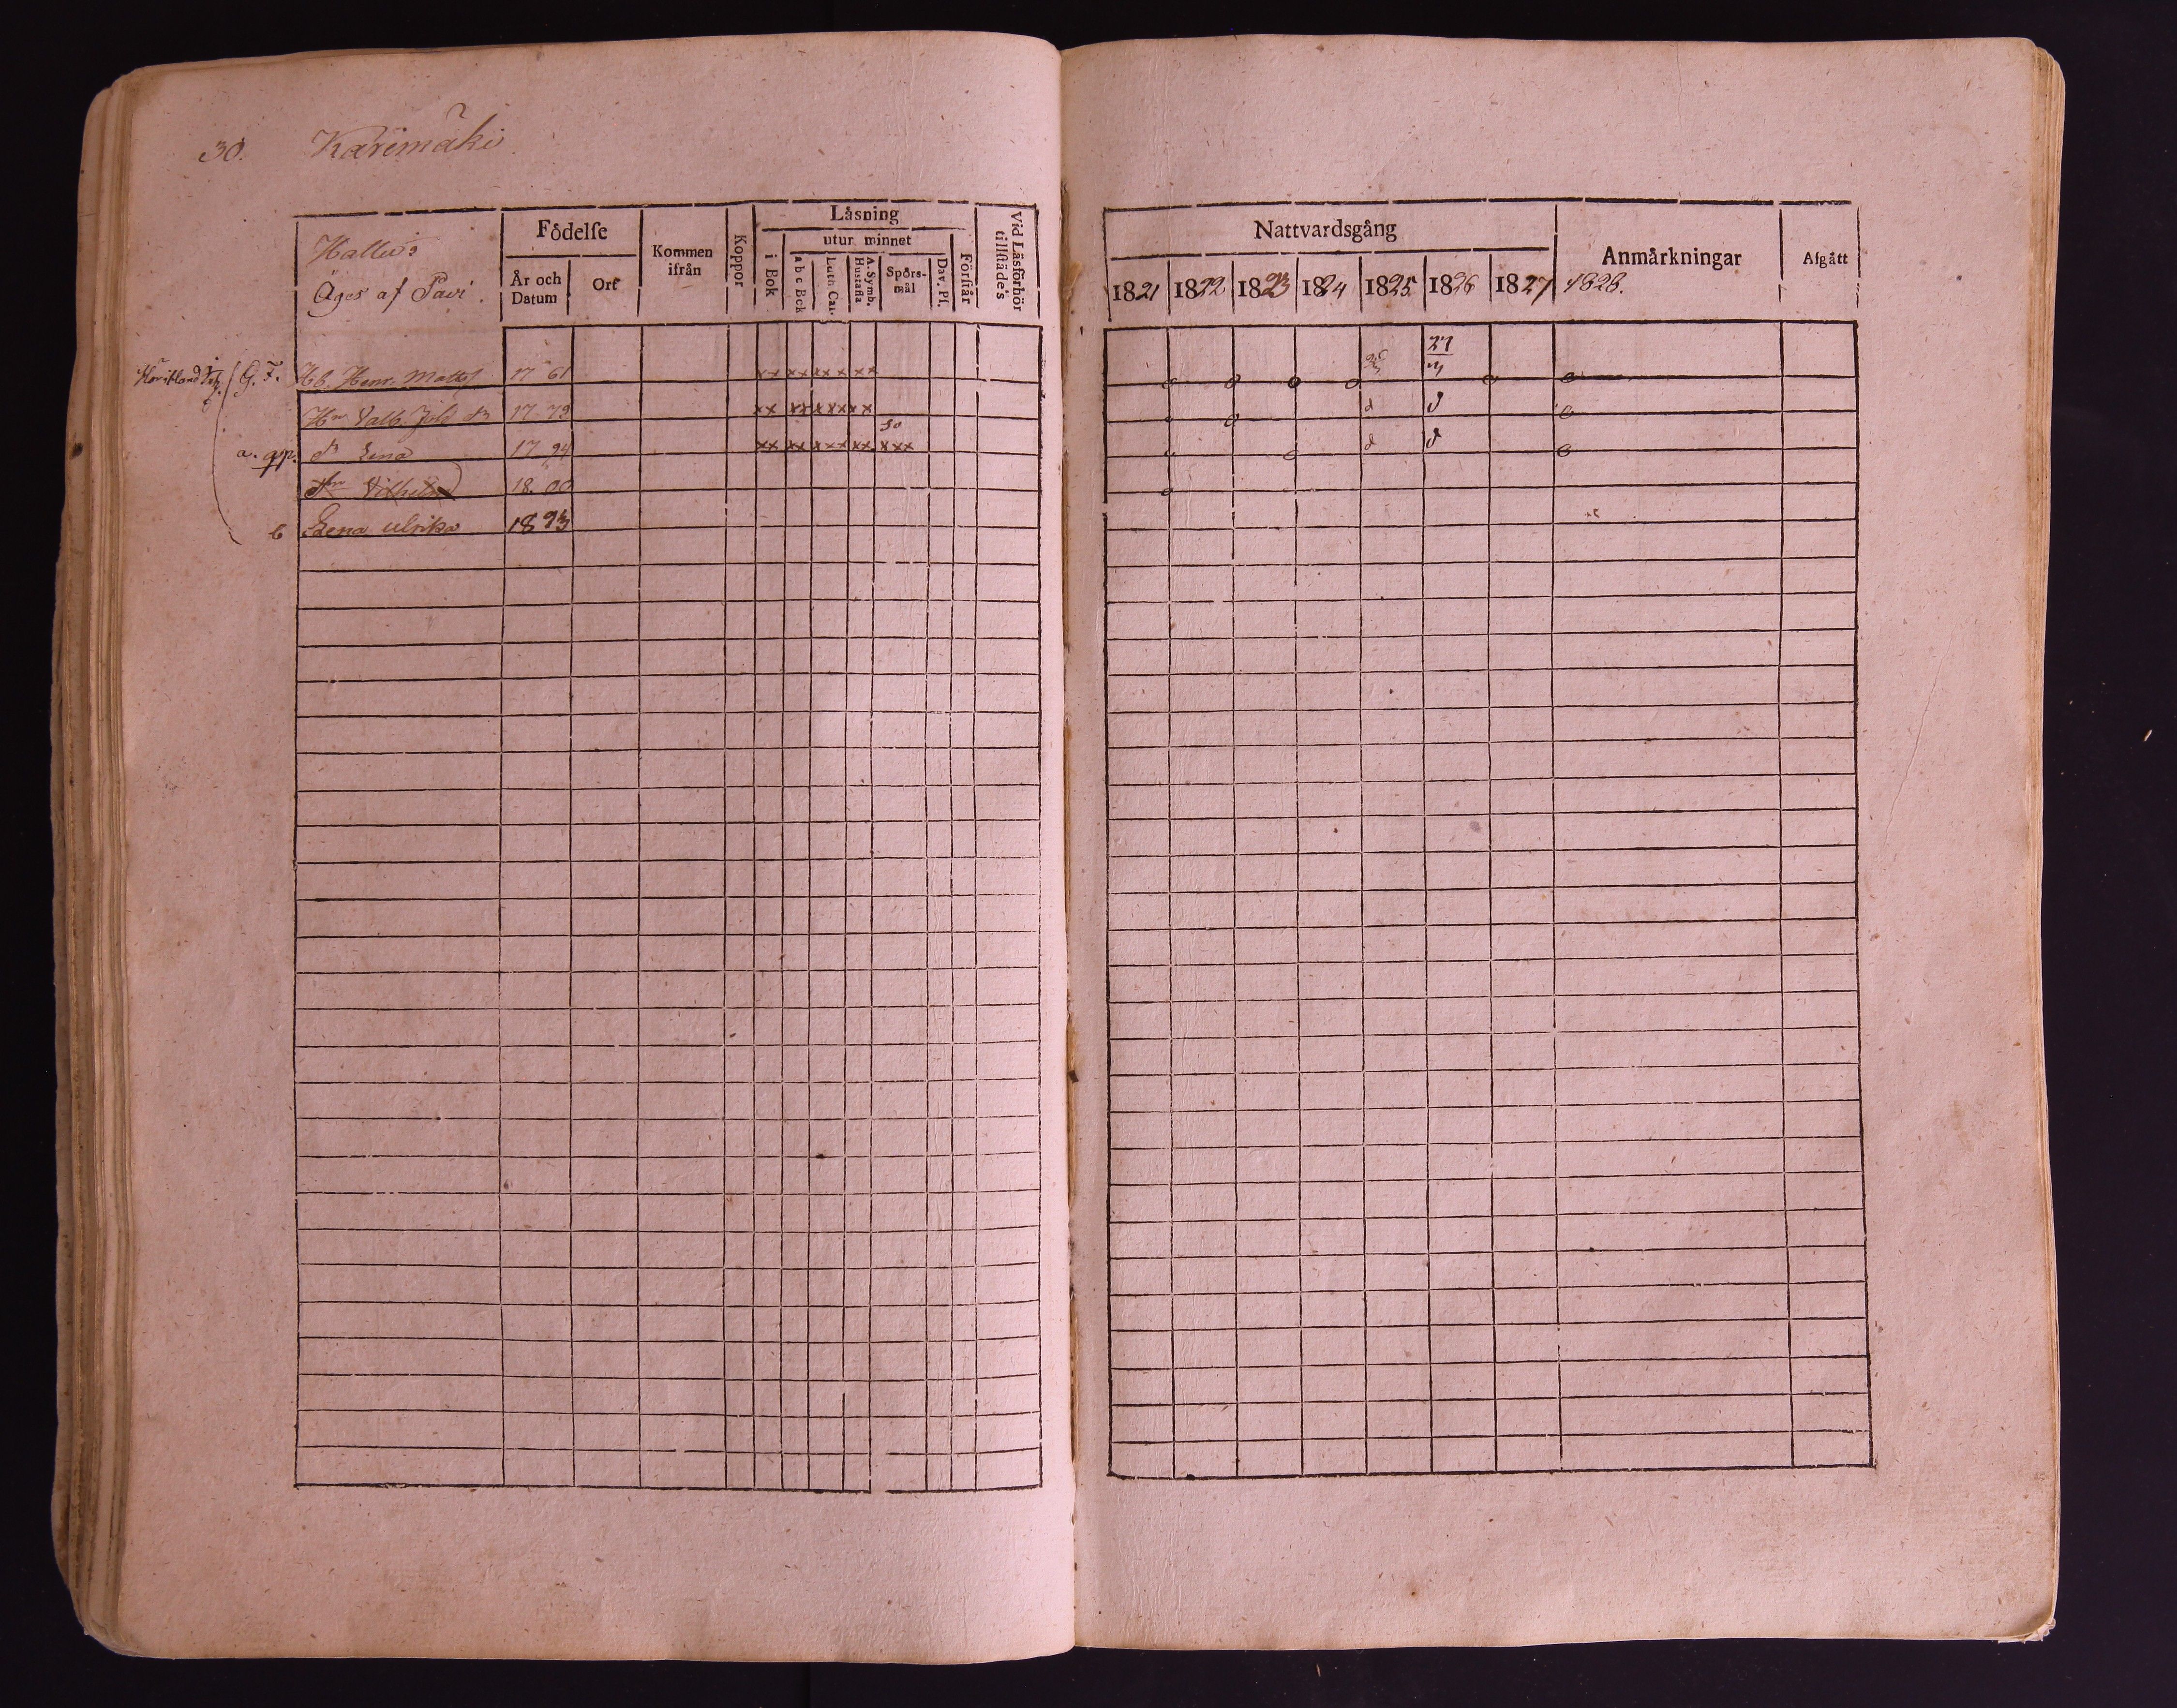 30. Karimäki
Hallus
Äges af Pavi.
Födelse
År och Datum
Ort
Kommen ifrån
Koppor
Läsning
i Bok
utur minnet
a b c Bok
Luth. Cat.
A. Symb. Hustafla
Spörs-mål
Dav. Ps.
Förstår
Vid Läsförhör tillstädes
G. F. Hb. Henr. Matts 1761 xx xx xx x xx
Hu Valb. Joh dr 1779 xx xx xx xx x
a. dr Lena 1794 xx xx xx xx. xxx 30
18.00
b Lena Ulrika 1823
Nattvardsgång
1821 1822 1823 1824 1825 1826 1827 1828.
Anmärkningar
Afgått
27
3